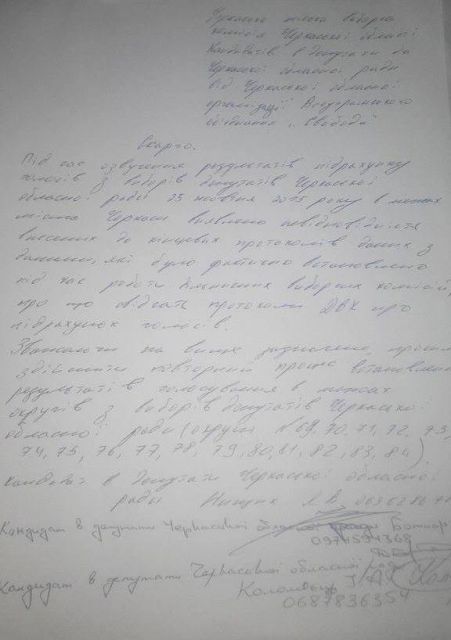 Черкаська міська виборча
комісія Черкаської області
Кандидатів в депутати до
Черкаської обласної ради
від Черкаської обласної
організації Всеукраїнського
об'єднання "Свобода"
Скарга.
Під час озвучення результатів підрахунку
голосів з виборів депутатів Черкаської
обласної ради 25 жовтня 2015 року в межах
міста Черкаси виявлено невідповідність
внесених до кінцевих протоколів даних з
даними, які було фактично встановлено
під час роботи дільничних виборчих комісій,
про що свідчать протоколи ДВК про
підрахунок голосів.
Зважаючи на вище зазначене, просимо
здійснити повторний процес встановлення
результатів голосування в межах
округів з виборів депутатів Черкаської
обласної ради (округи №69, 70, 71, 72, 73,
74, 75, 76, 77, 78, 79, 80, 81, 82, 83, 84)
Кандидат в депутати Черкаської обласної
ради Нищик Л.В.
Кандидат в депутати Черкаської обласної ради
0974594368
Кандидат в депутати Черкаської обласної
0687836359